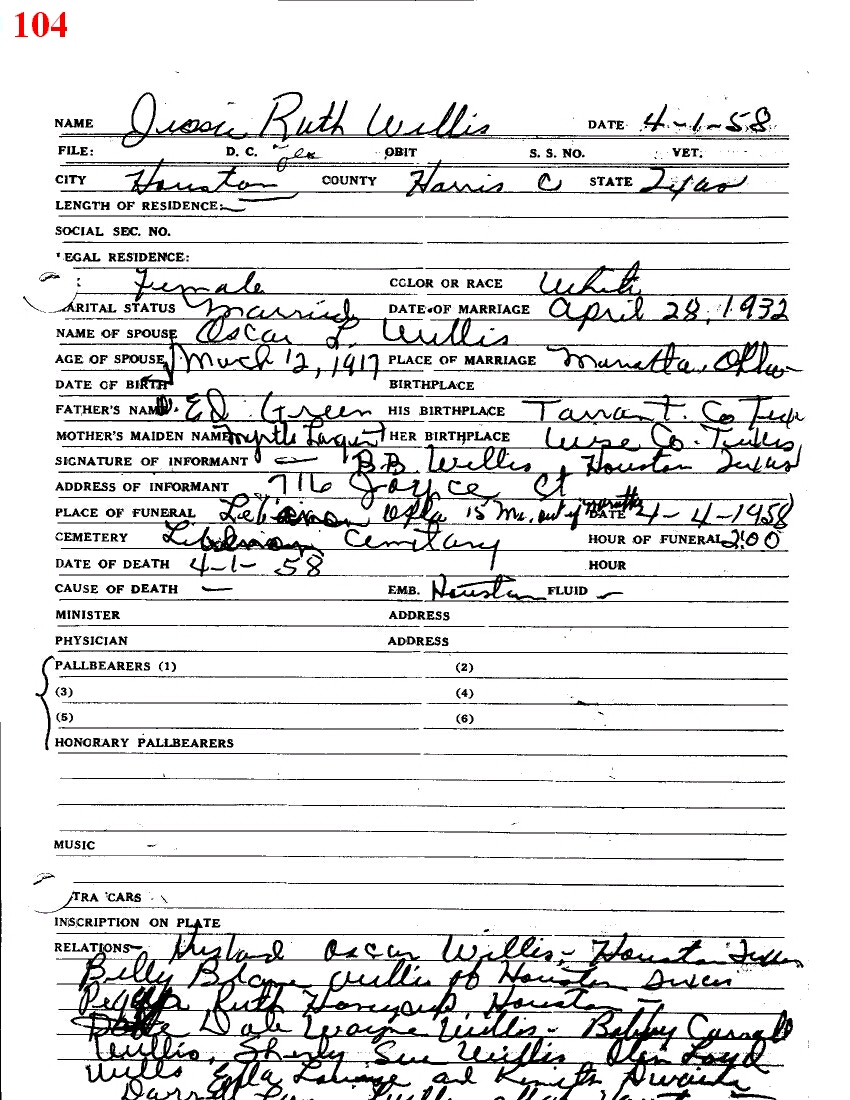 104
NAME Jessie Ruth Willis DATE 4-1-58
FILE: D. C. OBIT S. S. NO. VET.
CITY Houston COUNTY Harris C STATE Texas
LENGTH OF RESIDENCE: —
SOCIAL SEC. NO.
EGAL RESIDENCE:
: Female COLOR OR RACE White
ARITAL STATUS Married DATE OF MARRIAGE April 28, 1932
NAME OF SPOUSE Oscar L. Willis
AGE OF SPOUSE March 12, 1917 PLACE OF MARRIAGE Marietta, Okla
DATE OF BIRTH BIRTHPLACE
FATHER'S NAME Ed Green HIS BIRTHPLACE Tarrant. Co Tex
MOTHER'S MAIDEN NAME Myrtle HER BIRTHPLACE Wise Co. Texas
SIGNATURE OF INFORMANT — B.B. Willis, Houston Texas
ADDRESS OF INFORMANT 7116 Joyce Ct
PLACE OF FUNERAL Lebanon Okla 15 Mi. out of Marietta DATE 4-4-1958
CEMETERY Lebanon Cemitary HOUR OF FUNERAL 2:00
DATE OF DEATH 4-1-58 HOUR
CAUSE OF DEATH — EMB. Houston FLUID —
MINISTER ADDRESS
PHYSICIAN ADDRESS
PALLBEARERS (1) (2)
(3) (4)
(5) (6)
HONORARY PALLBEARERS
MUSIC -
TRA CARS
INSCRIPTION ON PLATE
RELATIONS— Husband Oscar Willis - Houston Texas
Billy Willis of Houston Texas
Ruth Houston -
Dale Wayne Willis - Bobby Carroll
Willis, Sue Willis, Loyd
Willis and